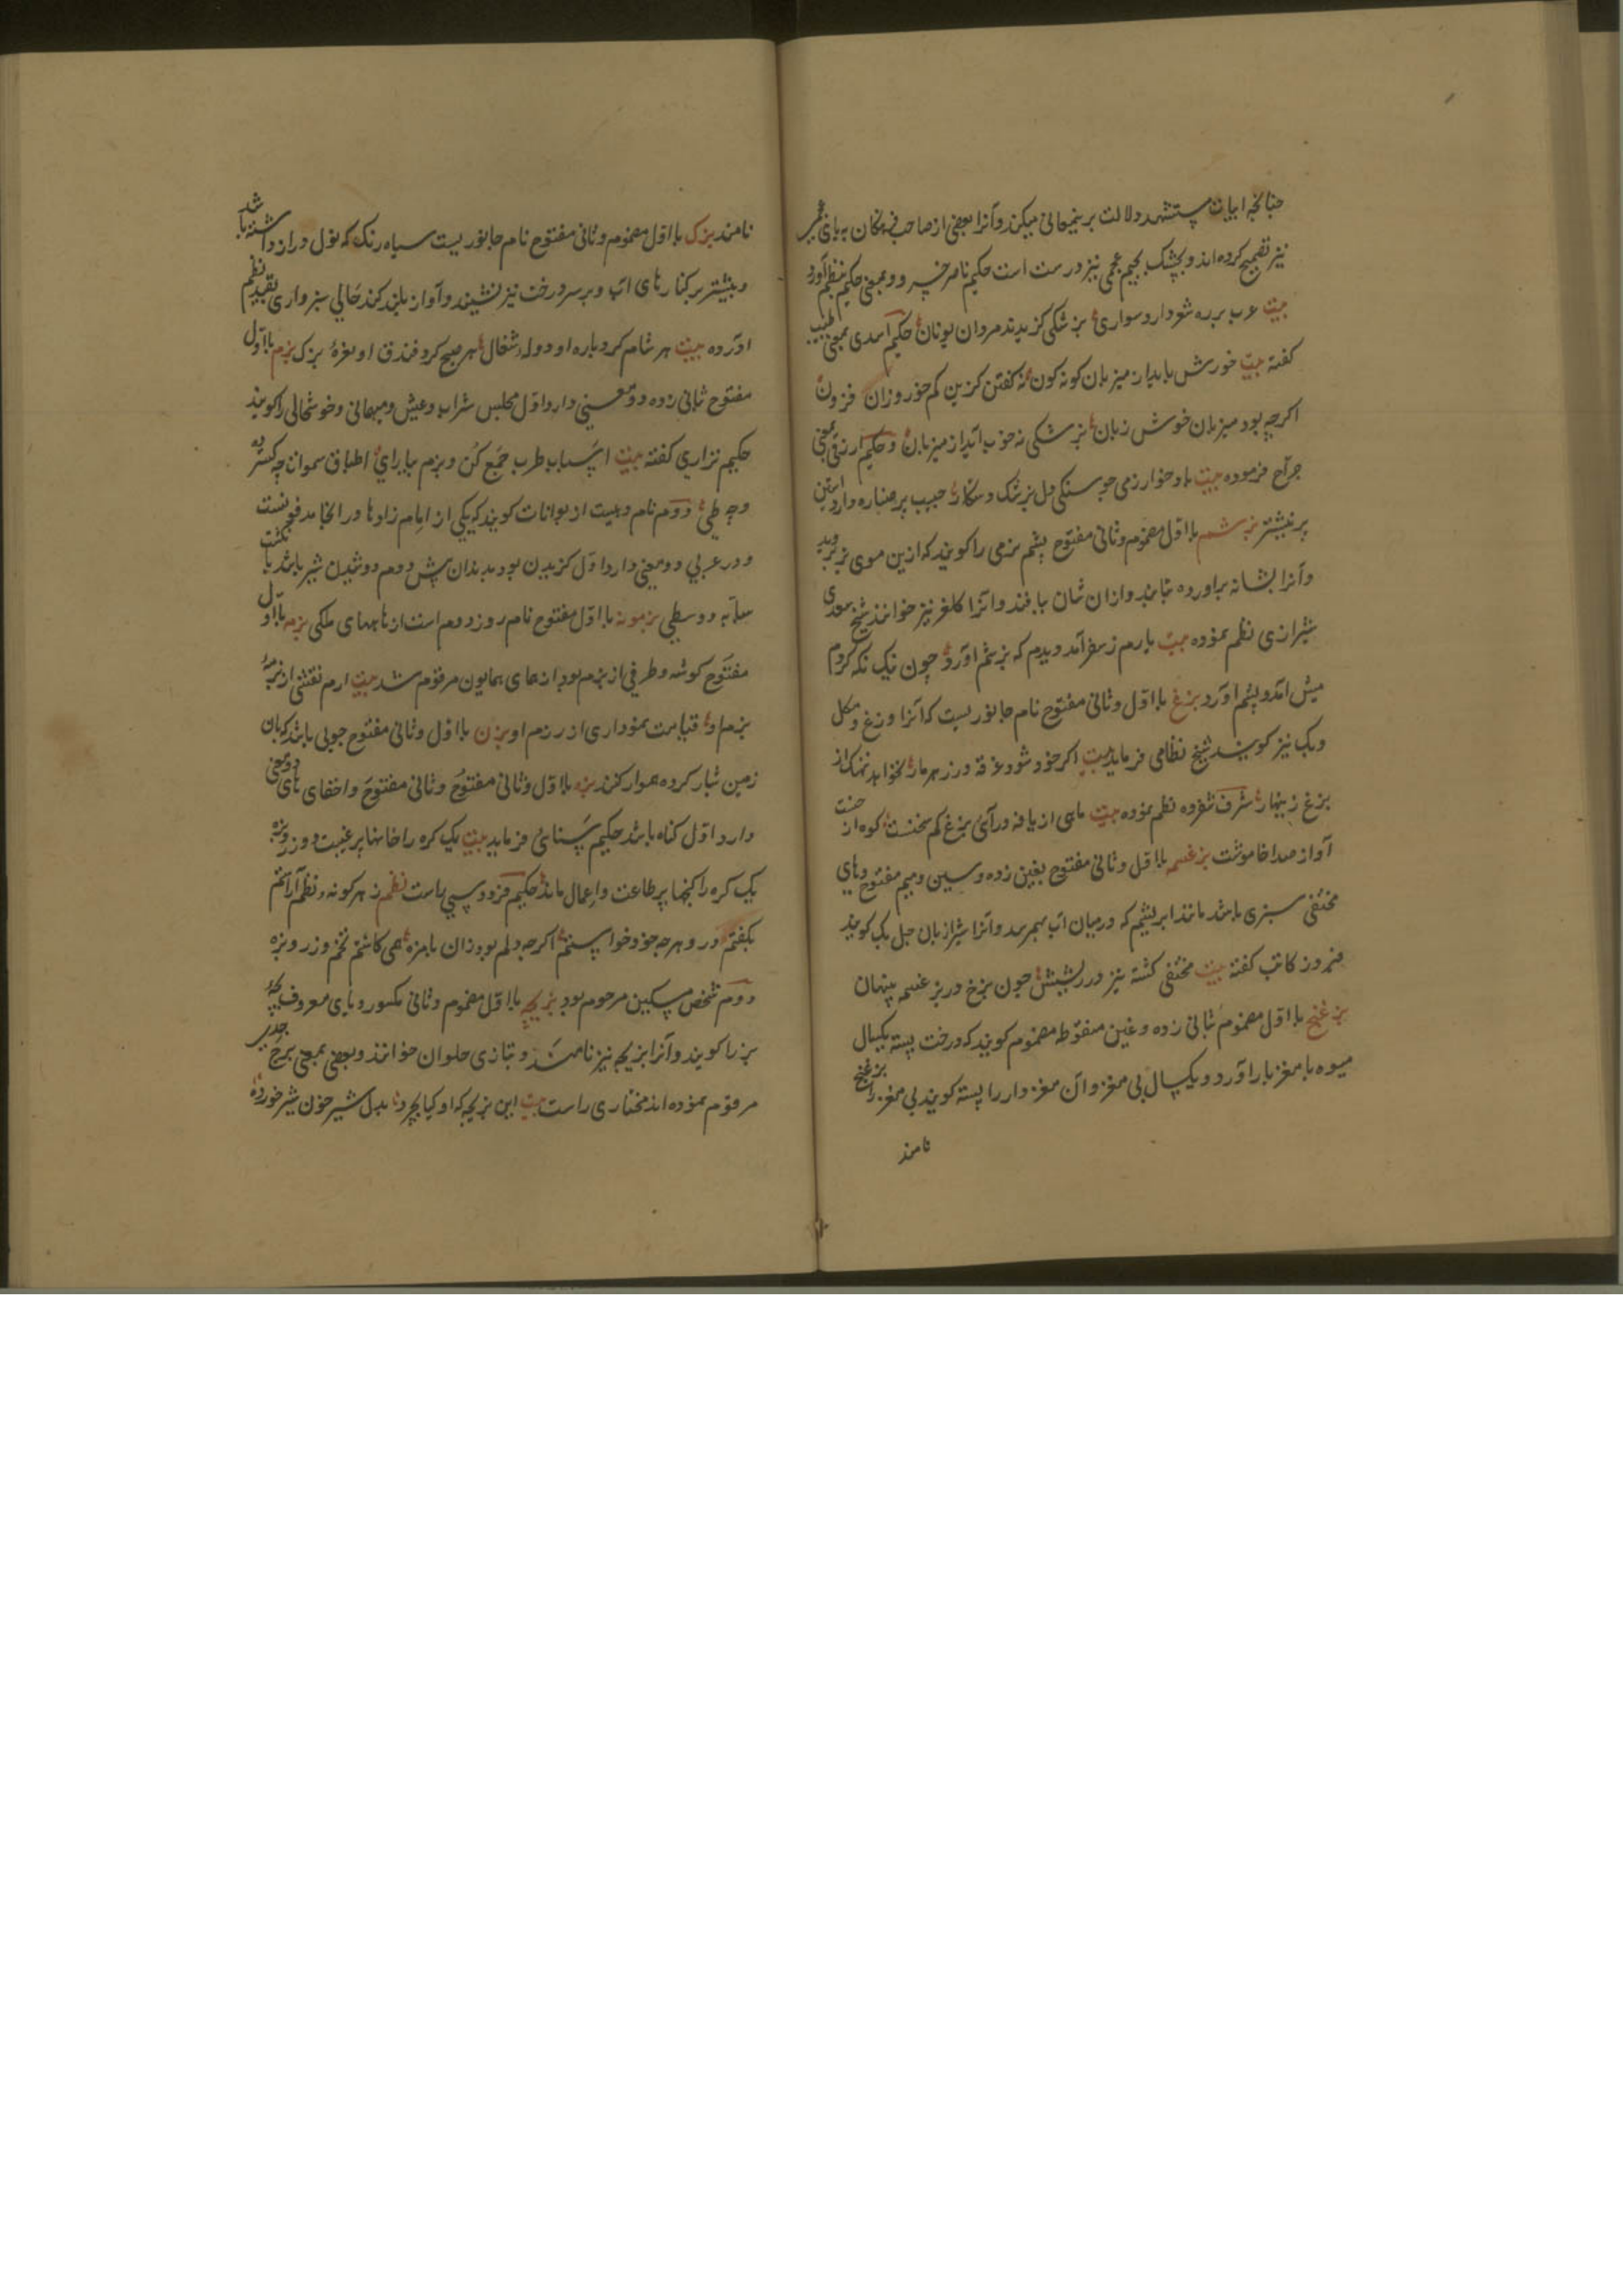 چنانچه ابیات مستشهد دلالت برینمعانی میکند و آنرا بعضی از صاحب فرهنگان به بای
نیز تصحیح کرده اند و بجشک بجیم عجمی نیز درست است حکیم ناصر خسرو و بمعنی حکیم بنظم آورد
بیت عرب بر ره شعر دارد سواری پزشکی گزیدند مردان یونان حکیم اسدی بمعنی طبیب
گفته بیت خورش باید از میزبان کونه کون نه کفتن کزین کم خور و زان فزون
اگرچه بود میزبان خوش زبان بزشکی نه خوب آید از میزبان و حکیم ازرقی بمعنی
جراح فرموده بیت باد خوارزمی چو سنکی دل بزشک
پر نیشتر بزشم با اول مضموم و ثانی مفتوح پشم نرمی را کویند که از بن موی بز بروید
و آنرا بشانه براورده بتابند و ازان شال بافند و آنرا کلغر نیز خوانند شیخ سعدی
شیرازی نظم نموده بیت یارم ز سفر آمد دیدم که بزشم آورد چون نیک نکه کردم
میش آمد و پشم آورد بزغ با اول و ثانی مفتوح نام جانوریست که آنرا وزغ و مکل
و بک نیز کویند شیخ نظامی فرماید بیت اکر خود شود غرقه در زهر مار نخواهد نهنک از
بزغ زینهار شرف شفروه نظم نموده بیت
آواز صدا خاموشت بزغسمه با اول و ثانی مفتوح بغین زده و سین و میم مفتوح و های
مختفی سبزی باشد مانند ابریشم که در میان آب بهم رسد و آنرا شیرازیان جل بک کویند
فیروز کاتب کفته بیت مختفی کشته تیز در ریشش چون بزغ در بزغسمه پنهان
بزغنج با اول مضموم بثانی زده و غین منقوطه مضموم کویند که درخت پسته یکسال
میوه با مغز بار آورد و یکسال بی مغز و آن مغزدار را پسته کویند بی مغز را بزغنج
نامند
نامند بزک با اول مضموم و ثانی مفتوح نام جانوریست سیاه رنک که نول دراز داشته باشد
و بیشتر بر کنارهای آب و بر سر درخت نیز نشیند و آواز بلند کند خالی سبزواری بقید نظم
آورده بیت هر شام کرد باره او دوله شغال هر صبح کرد فندق او نعره بزک بزم با اول
مفتوح ثانی زده دو معنی دارد اول مجلس شراب و عیش و مهمانی و خوشحالی را کویند
حکیم نزاری کفته بیت اسباب طرب جمع کن و بزم بیارای اطباق سموات چه کسترده
و چه طی دوم نام دهیست از بوانات کویند که یکی از امام زادها در انجا مدفونست
و در عربی دو معنی دارد اول کزیدن بود بدندان پیش دوم دوشیدن شیر باشد با نکشت
سبابه و وسطی بزمونه با اول مفتوح نام روز دوم است از ماههای ملکی بزمه با اول
مفتوح کوشه و طرفی از بزم بود از همای همایون مرقوم شد بیت ارم نقشی از بزمه
بزم او قیامت نموداری از رزم او بزن با اول و ثانی مفتوح چوبی باشد که بان
زمین شیار کرده هموار کنند بزه با اول و ثانی مفتوح و اخفای های دو معنی
دارد اول کناه باشد حکیم سنائی فرماید بیت یک کره را خانها پر غیبت و وزر و بزه
یک کره را کنجها پر طاعت و اعمال ماند حکیم فردوسی راست نظم ز هر کونه نظم آراستم
بکفتم درو هرچه خود خواستم اکرچه دلم بود زان بامزه همی کاشتم تخم وزر و بزه
دوم شخص مسکین مرحوم بود بزیچه با اول مضموم و ثانی مکسور و یای معروف بچه
بز را کویند و آنرا بزیجه نیز نامند و بتازی حلوان خوانند و بعضی بمعنی برج جدی
مرقوم نموده اند مختاری راست بیت این بزیچه که او کیا بچرد نا بدل شیر خون شیر خورده